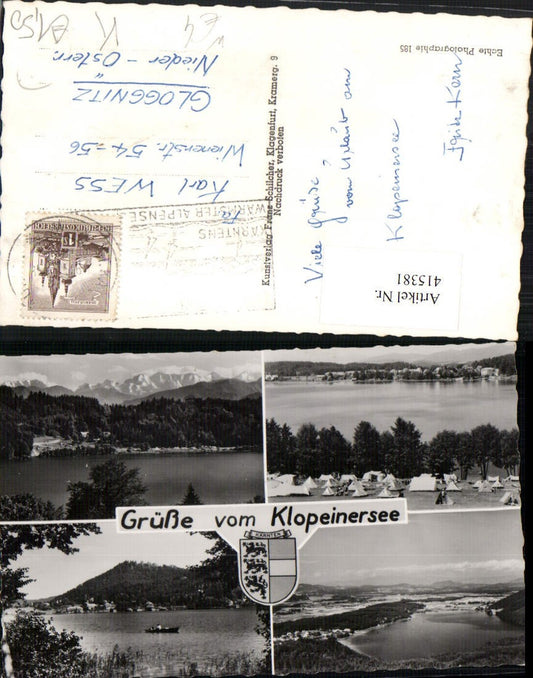 Echte Photographie 185
Karl WESS
Wienerstr. 54-56
GLOGGNITZ
Nieder-Österr.
K
KÄRNTENS
WÄRMSTER ALPENSEE
REPUBLIK ÖSTERREICH
Kunstverlag Franz Schilcher, Klagenfurt, Kramerg. 9
Nachdruck verboten
Viele Grüsse
vom Urlaub am
Klopeinersee
Artikel Nr.
415381
Grüße vom Klopeinersee
KÄRNTEN